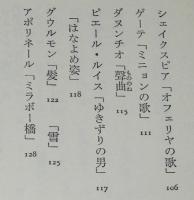 シェイクスピア「オフェリヤの歌」 106
ゲーテ「ミニョンの歌」 111
ダヌンチオ「聲曲」 115
もののね
ピエール・ルイス「ゆきずりの男」 117
「はなよめ姿」 118
グウルモン「髪」 122 「雪」 125
アポリネール「ミラボー橋」 128